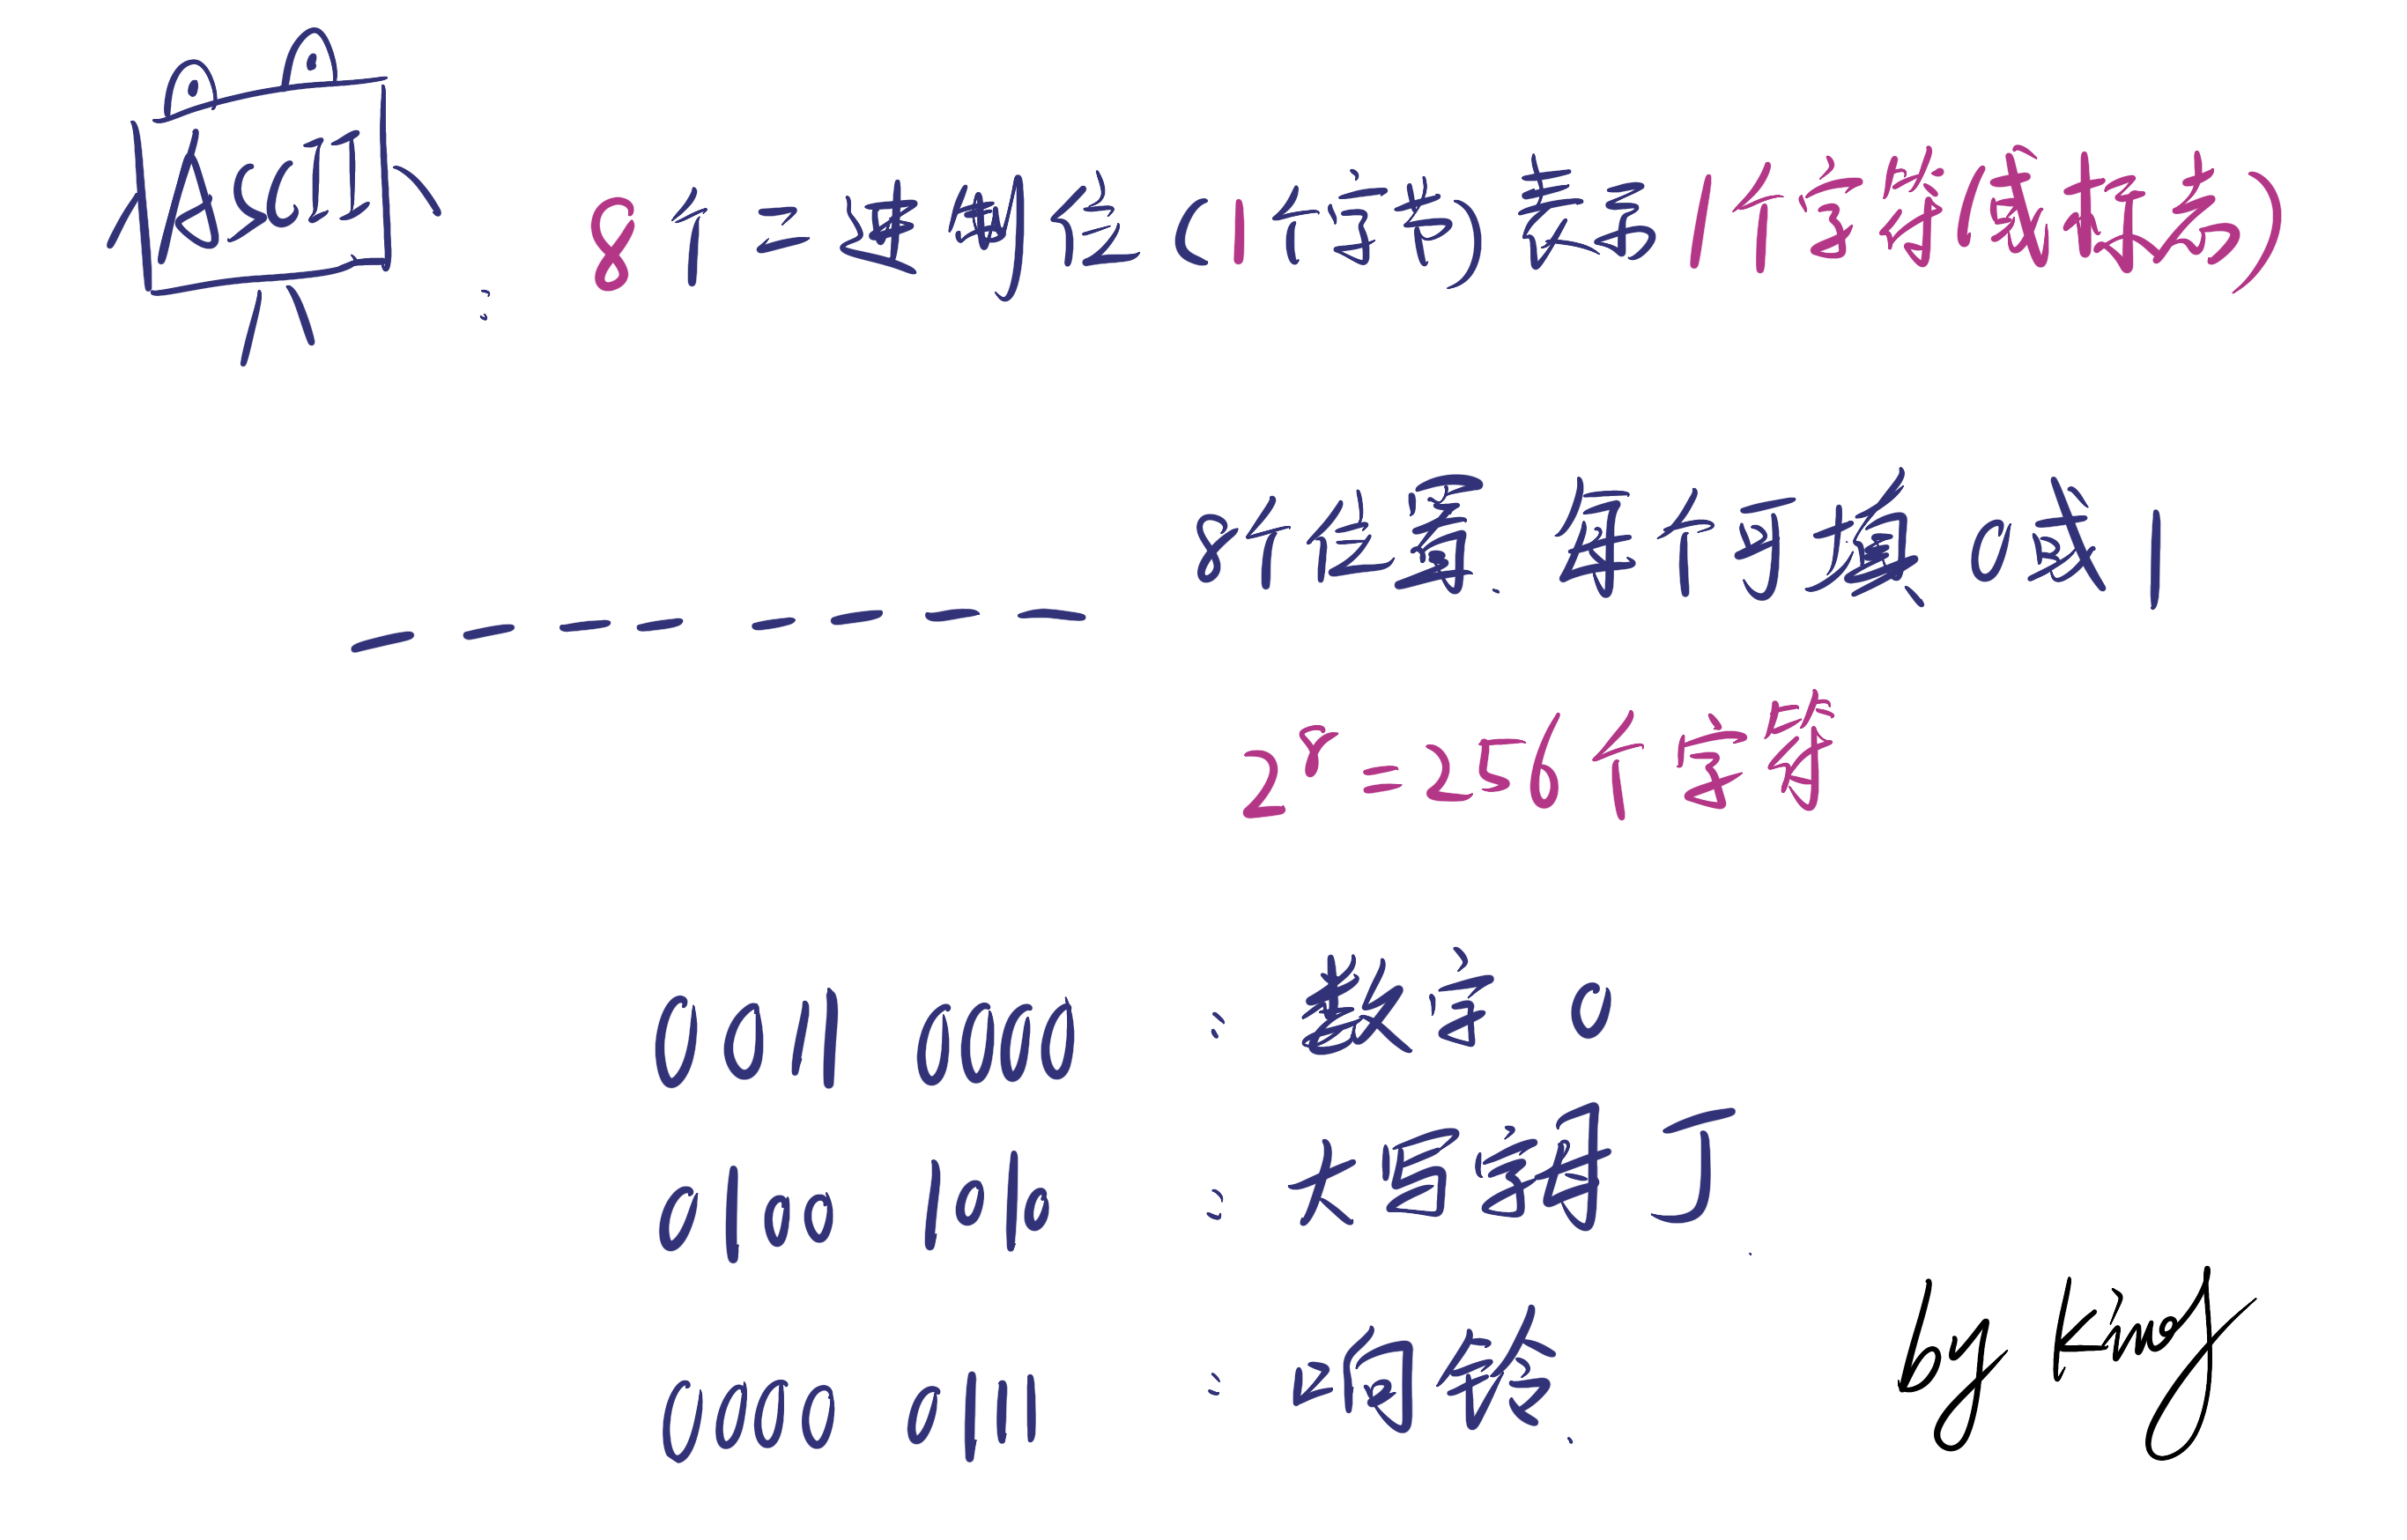 ASCII : 8个二进制位(1个字节)表示1个字符或操控)
8个位置.每个可填0或1
2⁸=256个字符
0011 0000 : 数字 0
0100 1010 : 大写字母 J
0000 0111 : 响铃.
by King